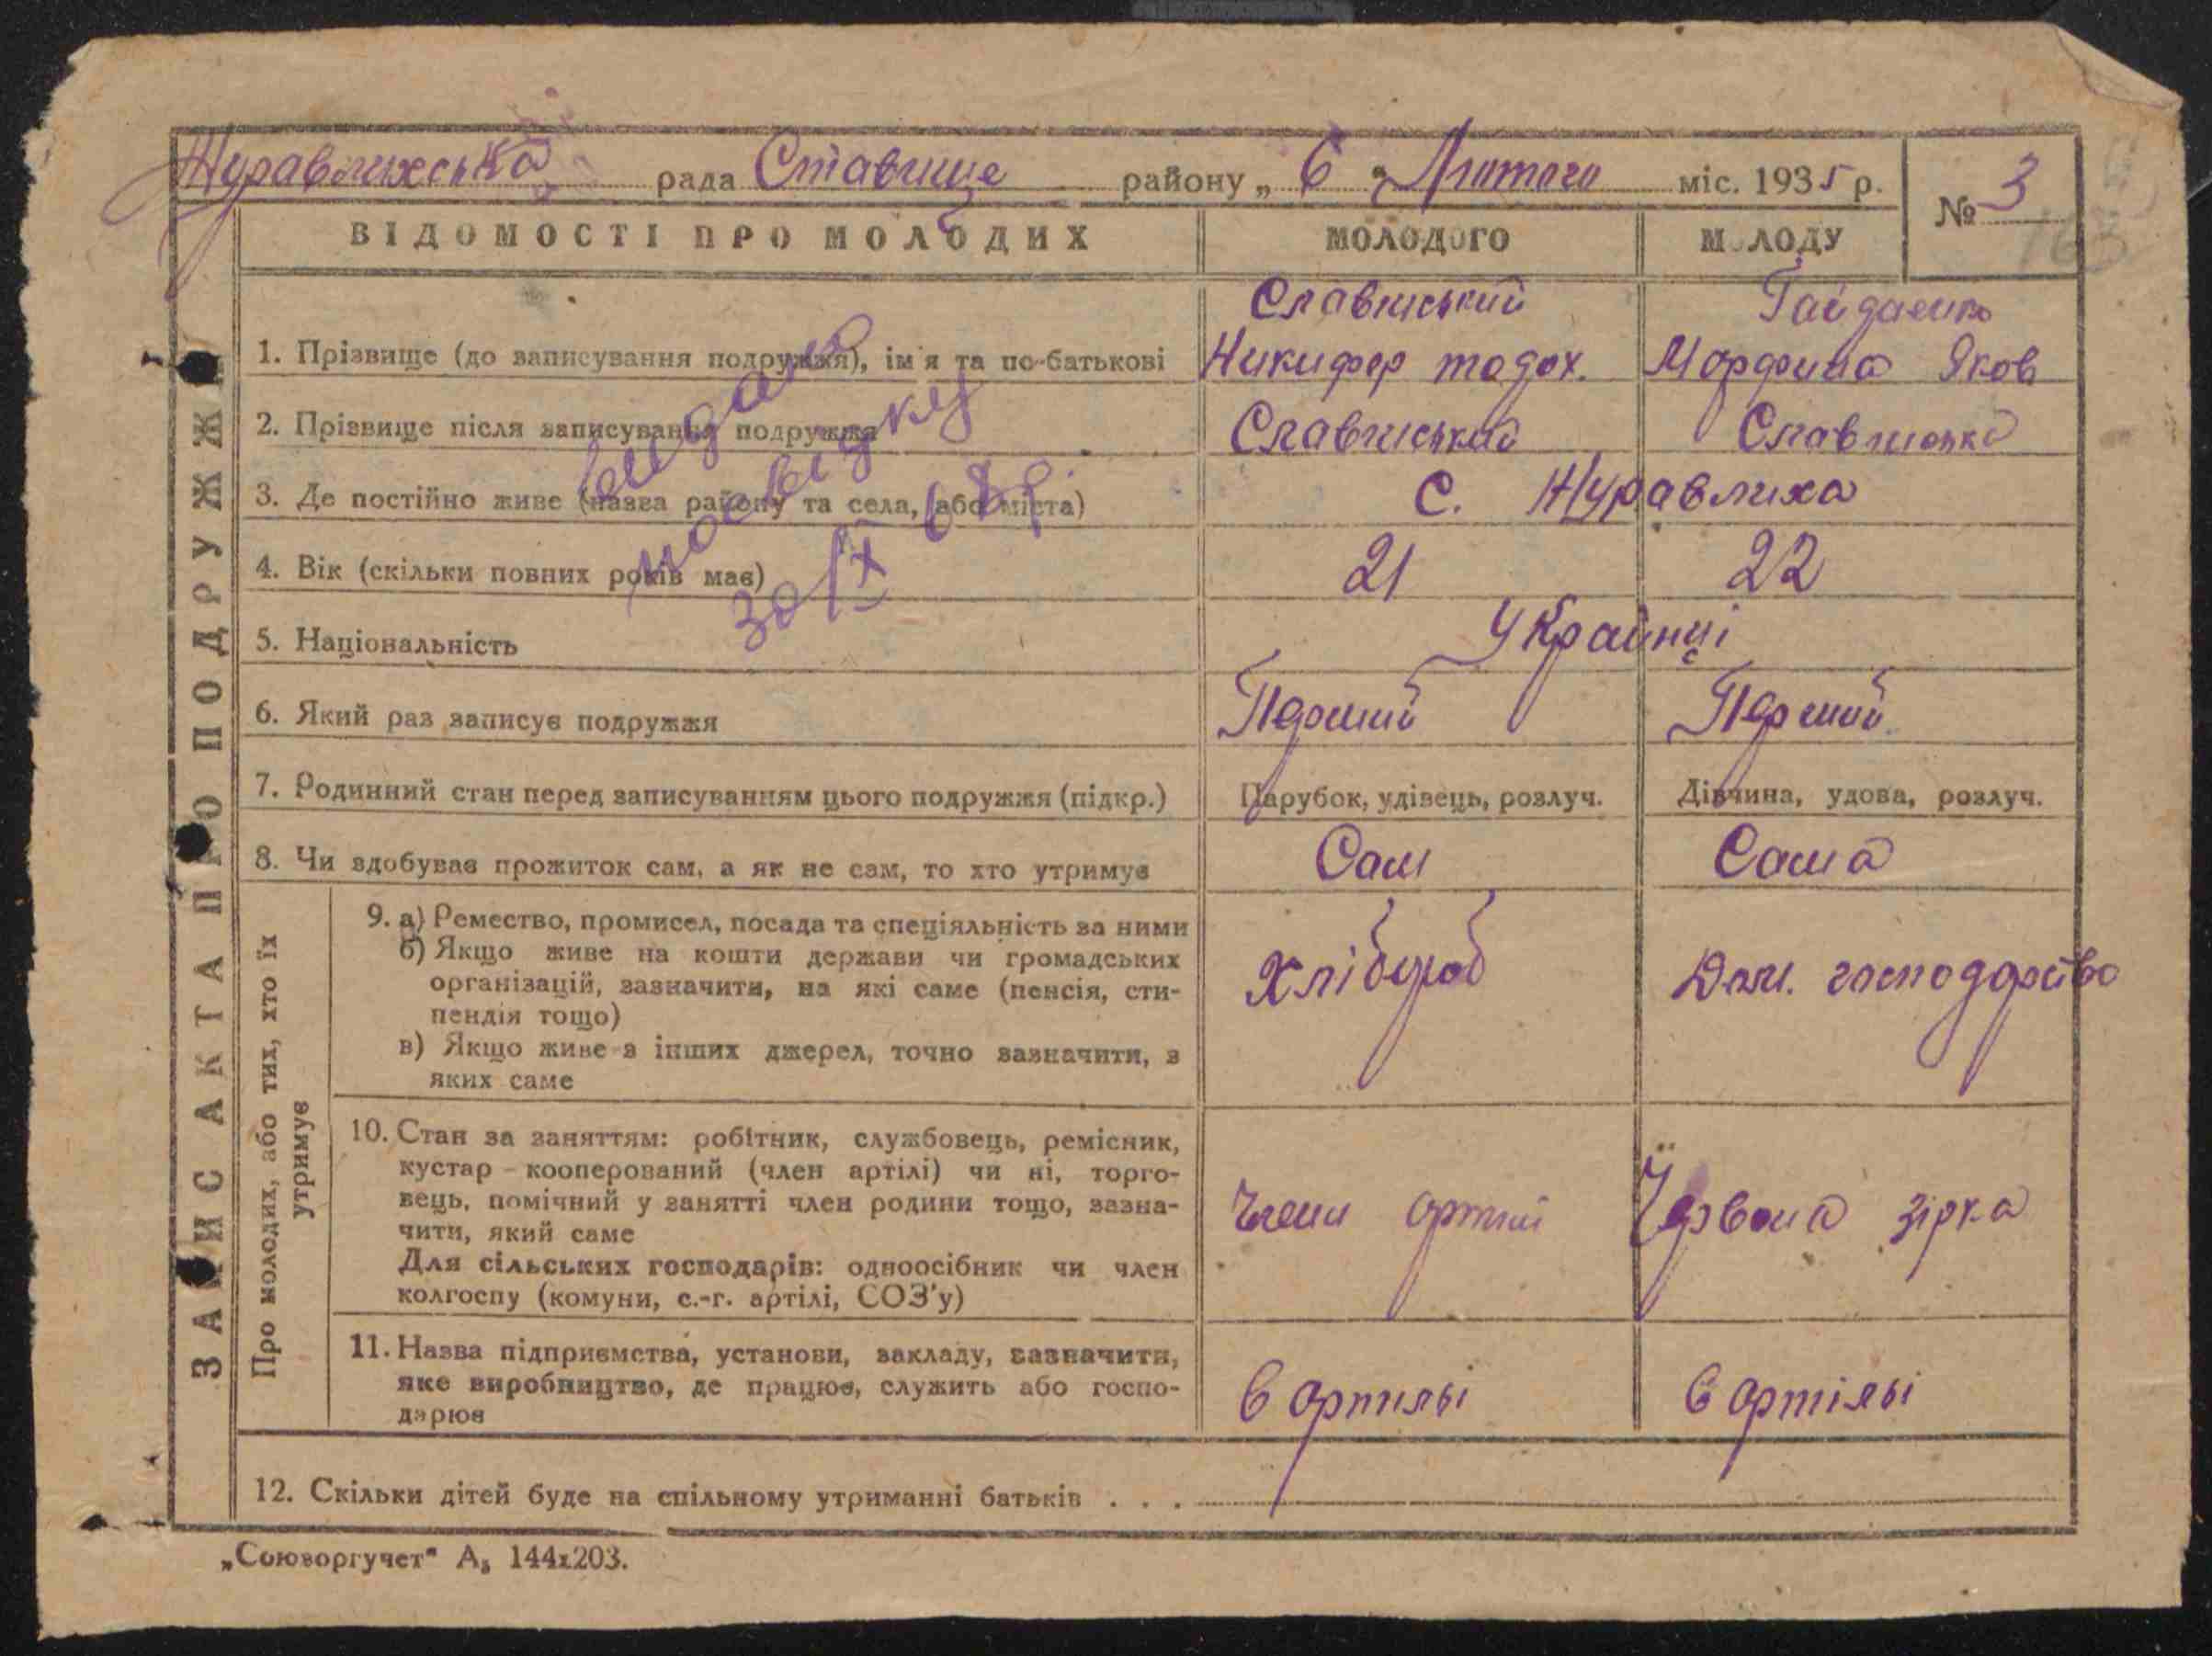 Журавлихська рада Ставище району „ 6 " Лютого міс. 1935 р.
№ 3
163
ВІДОМОСТІ ПРО МОЛОДИХ
МОЛОДОГО
МОЛОДУ
ЗАПИС АКТА ПРО ПОДРУЖЖЯ
1. Прізвище (до записування подружжя), ім'я та по-батькові
Славінський
Никифер тодох.
Гайдаенко
Морфина Яков
2. Прізвище після записування подружжя
Славінський
3. Де постійно живе (назва району та села, або міста)
С. Журавлиха
4. Вік (скільки повних років має)
21
22
5. Національність
Українці
6. Який раз записує подружжя
Перший
Перший
7. Родинний стан перед записуванням цього подружжя (підкр.)
Парубок, удівець, розлуч.
Дівчина, удова, розлуч.
8. Чи здобуває прожиток сам, а як не сам, то хто утримує
Сам
Сама
Про молодих, або тих, хто їх
утримує
9. а) Ремество, промисел, посада та спеціяльність за ними
б) Якщо живе на кошти держави чи громадських
організацій, зазначити, на які саме (пенсія, сти-
пендія тощо)
в) Якщо живе з інших джерел, точно зазначити, з
яких саме
Хлібороб
Дом. господарство
10. Стан за заняттям: робітник, службовець, ремісник,
кустар - кооперований (член артілі) чи ні, торго-
вець, помічний у занятті член родини тощо, зазна-
чити, який саме
Для сільських господарів: одноосібник чи член
колгоспу (комуни, с.-г. артілі, СОЗ'у)
Член артілі Червона зірка
11. Назва підприємства, установи, закладу, зазначити,
яке виробництво, де працює, служить або госпо-
дарює
в артильі
в артільі
12. Скільки дітей буде на спільному утриманні батьків . . .
видано
довідку
30/IX 68р.
„Союзоргучет" А₅ 144х203.